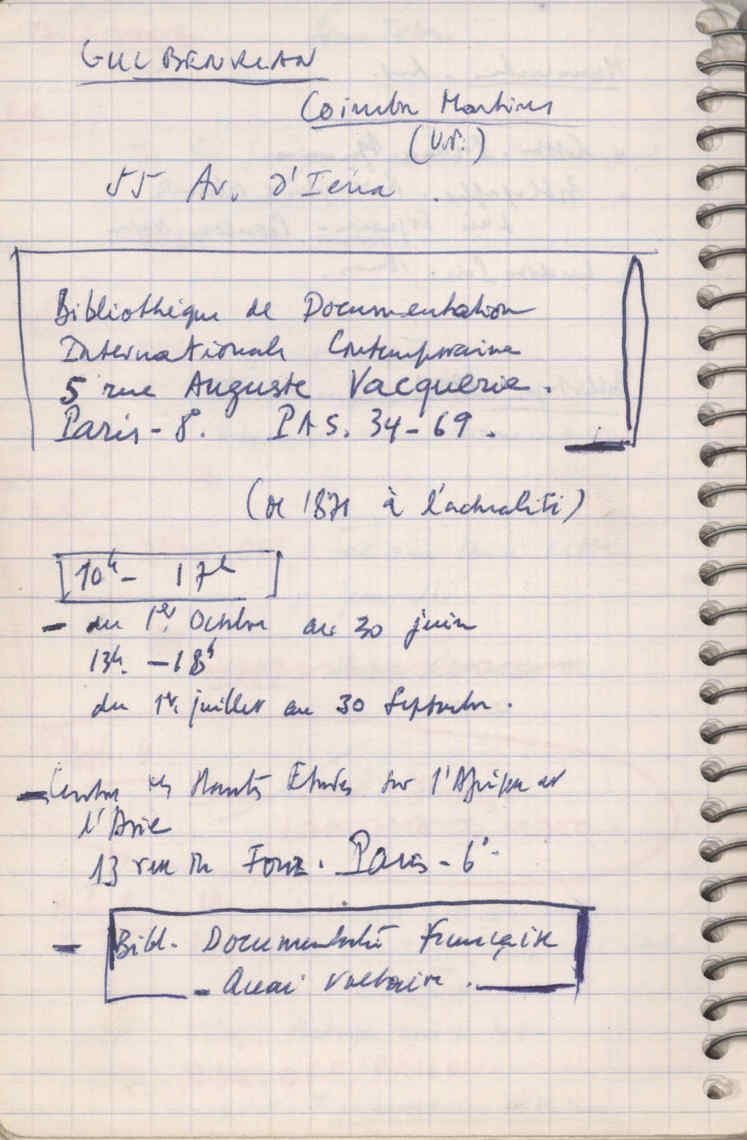 GULBENKIAN
Coimbra Martins
55 Av. d'Iéna.
Bibliothèque de Documentation
Internationale Contemporaine
5 rue Auguste Vacquerie.
Paris - 8e. PAS. 34-69.
(de 1871 à l'actualité)
10h - 17h
- du 1er Octobre au 30 juin
13h. - 18h
du 1er juillet au 30 Septembre.
- Centre des Hautes Etudes sur l'Afrique et
l'Asie
13 rue du Four. Paris - 6e-
- Bibl. Documentation française
- Quai Voltaire.